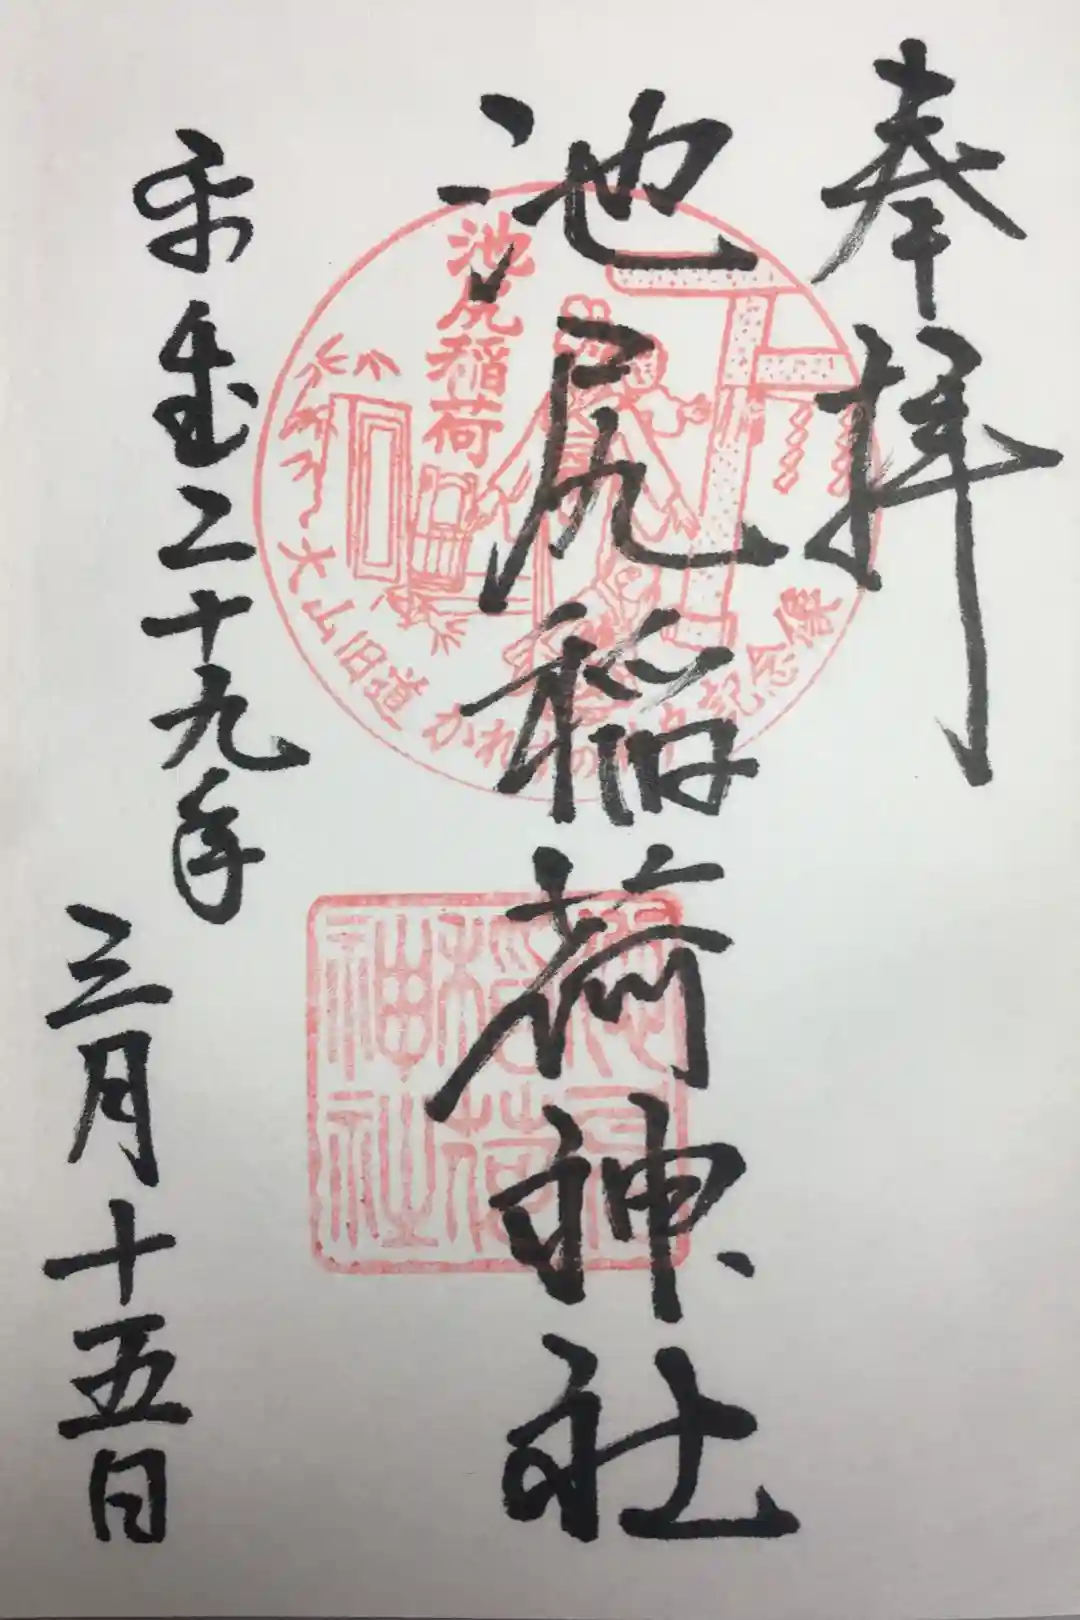 奉拝
池尻稲荷神社
平成二十九年
三月十五日
池尻稲荷
大山旧道
かれずの
記念
稲荷
神社